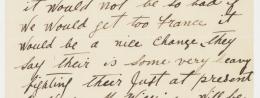 it would not be so bad if
we would get too france it
would be a nice change, they
say their is some very heavy
fighting their just at present
will be